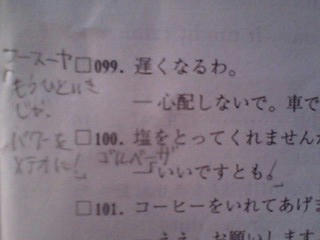 コースーヤ
「もうひといき
じゃ.
パワーを
メテオに!」
□099. 遅くなるわ。
— 心配しないで。車で
□100. 塩をとってくれません
ゴルベーザ
—「いいですとも!」
□101. コーヒーをいれてあげま
ええ、お願いします